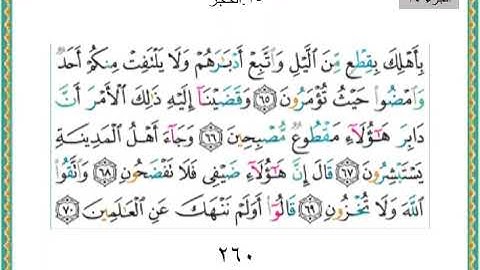 ١٥. الحجر
بِأَهْلِكَ بِقِطْعٍ مِّنَ الَّيْلِ وَاتَّبِعْ أَدْبَٰرَهُمْ وَلَا يَلْتَفِتْ مِنكُمْ أَحَدٌ
وَامْضُوا۟ حَيْثُ تُؤْمَرُونَ ٦٥ وَقَضَيْنَآ إِلَيْهِ ذَٰلِكَ الْأَمْرَ أَنَّ
دَابِرَ هَٰٓؤُلَآءِ مَقْطُوعٌ مُّصْبِحِينَ ٦٦ وَجَآءَ أَهْلُ الْمَدِينَةِ
يَسْتَبْشِرُونَ ٦٧ قَالَ إِنَّ هَٰٓؤُلَآءِ ضَيْفِى فَلَا تَفْضَحُونِ ٦٨ وَاتَّقُوا۟
اللَّهَ وَلَا تُخْزُونِ ٦٩ قَالُوٓا۟ أَوَلَمْ نَنْهَكَ عَنِ الْعَٰلَمِينَ ٧٠
٢٦٠